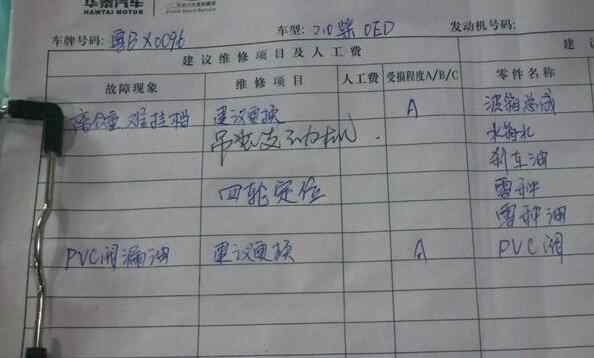 华泰汽车
HAWTAI MOTOR
车牌号码: 粤BX0096 车型: 210柴 OED 发动机号码:
建议维修项目及人工费 建议
故障现象 维修项目 人工费 受损程度A/B/C 零件名称
难挂档 建议更换 A 波箱总成
吊装发动机.
刹车油
四轮定位
PVC阀漏油 建议更换 A PVC阀